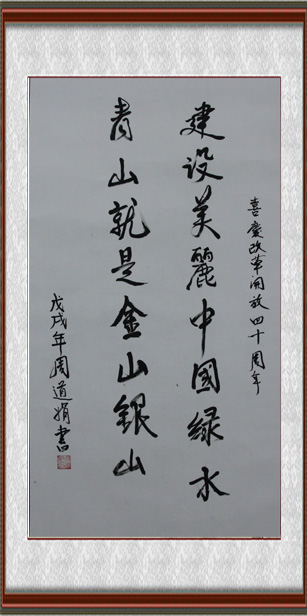 喜慶改革開放四十周年
建设美麗中國绿水
青山就是金山銀山
戊戌年周道娟書